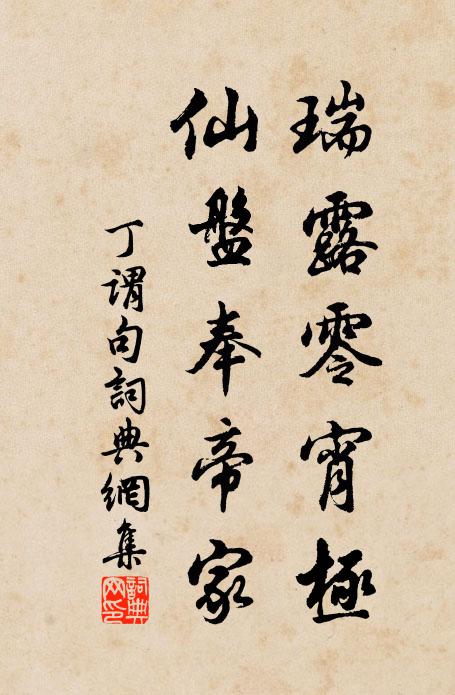 瑞露零宵極
仙盤奉帝家
丁謂句詞典網集
詞典